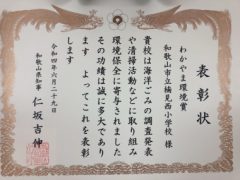 表彰状
わかやま環境賞
和歌山市立楠見西小学校 様
貴校は海洋ごみの調査発表
や清掃活動などに取り組み
環境保全に寄与されました
その功績は誠に多大であり
ます よってこれを表彰
します
令和四年六月二十九日
和歌山県知事 仁坂吉伸